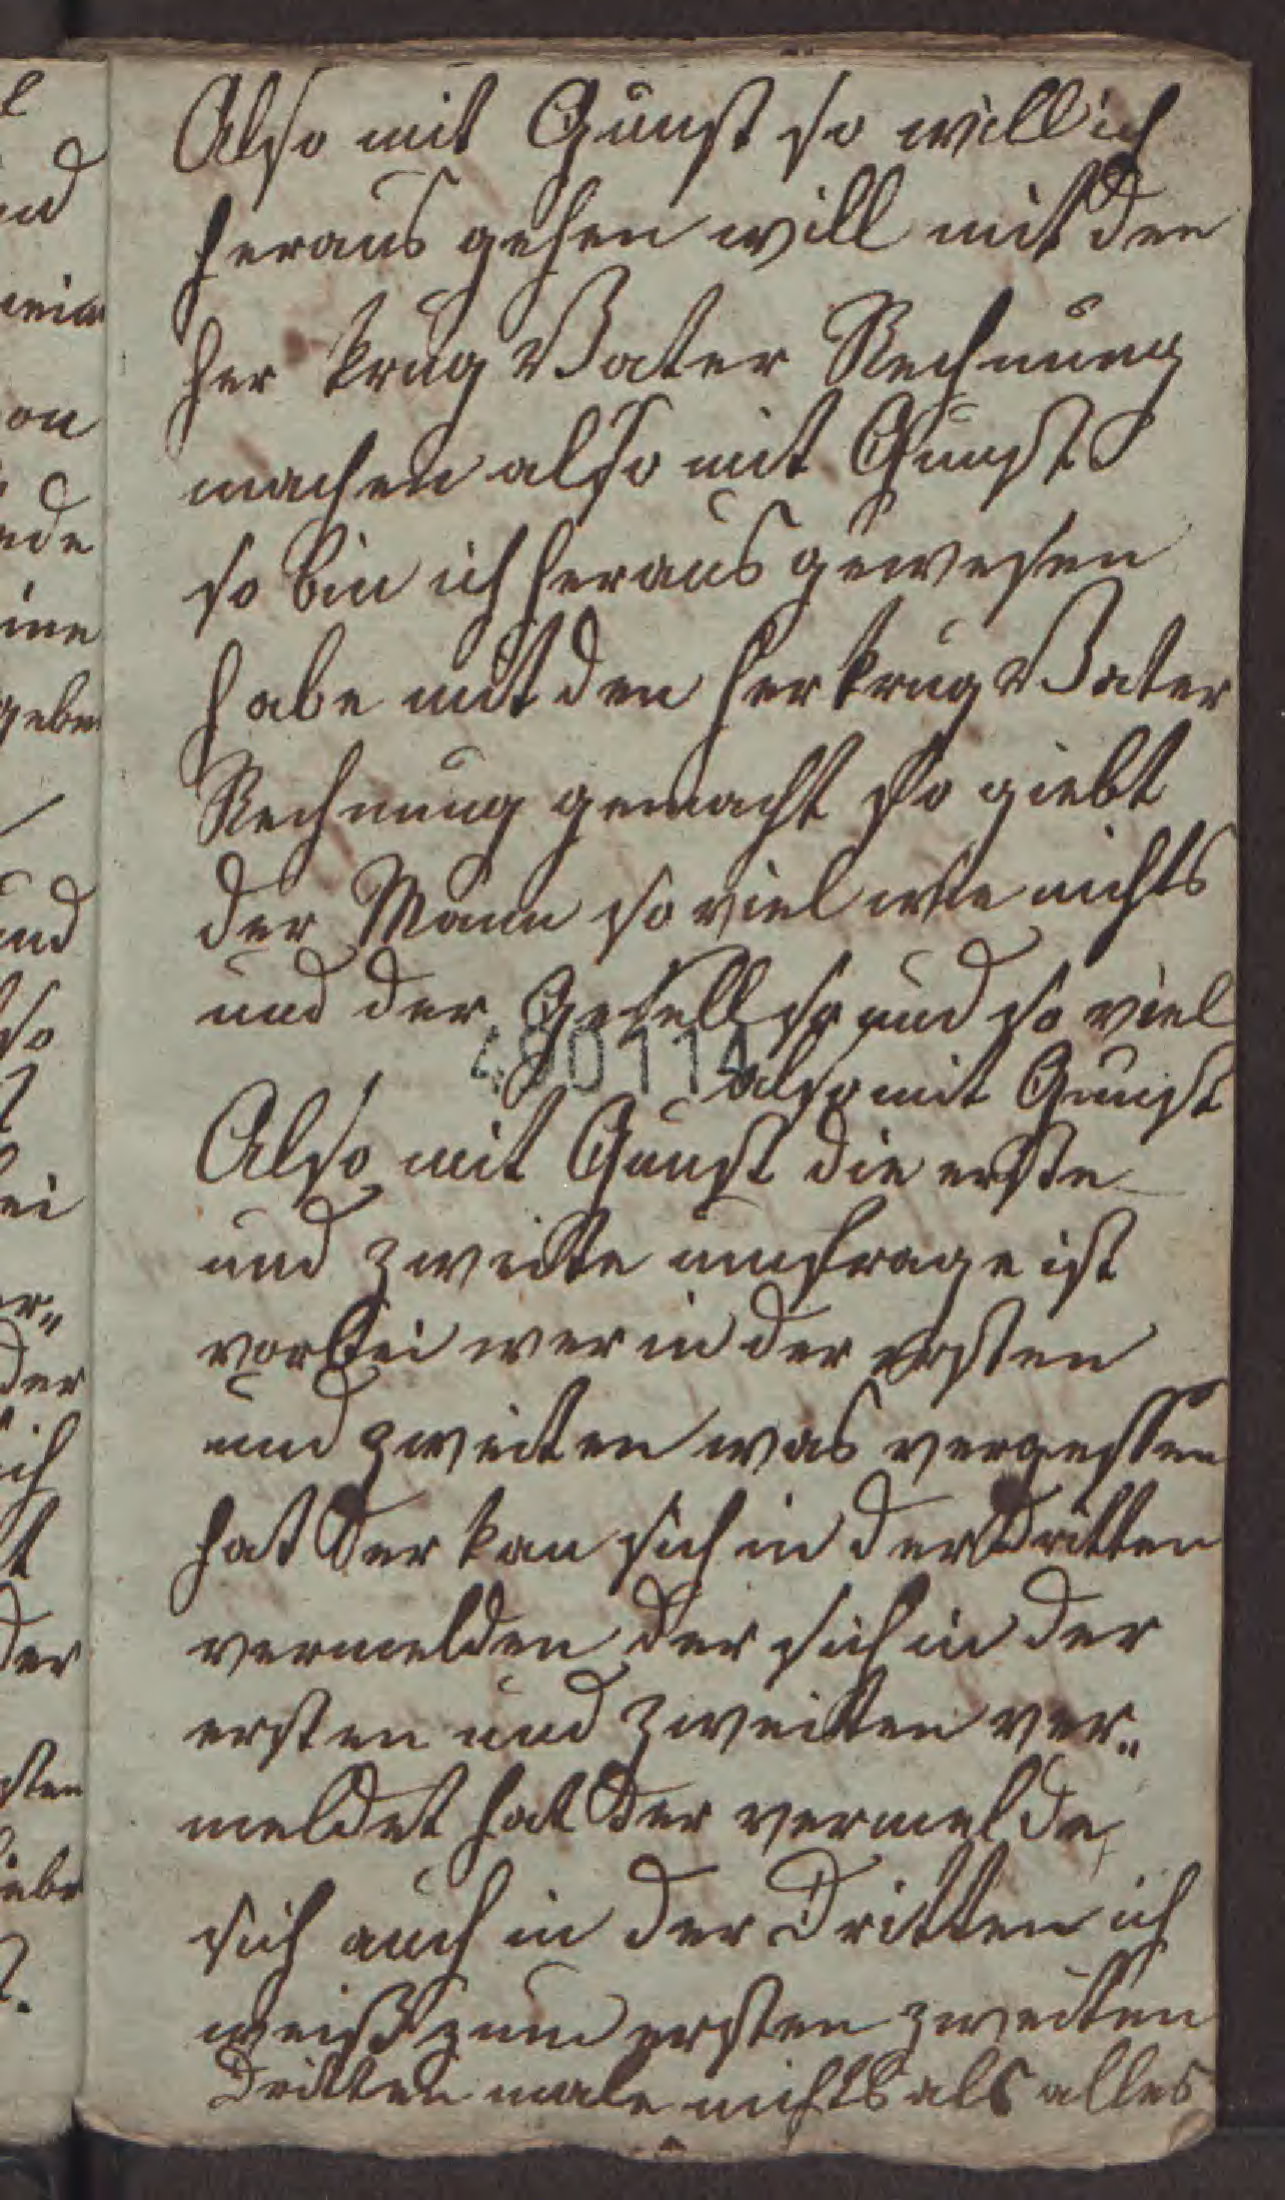 Also mit Gunst so will ich
heraus gehen will mit den
her krug Vater Rechnung
machen also mit Gunst
so bin ich heraus gewesen
habe mit den her krug Vater
Rechnung gemacht so giebt
der Mann so viel wie nichts
und der Gesell so und so viel
490114
also mit Gunst
Also mit Gunst die erste
und zweitte umfrage ist
vorbei wer in der ersten
und zweiten was vergessen
hat der kan sich in der dritten
vermelden der sich in der
ersten und zweitten ver„
meldet hat der vermelde
sich auch in der Dritten ich
weiß zum ersten zweiten
Dritten male nichts als alles